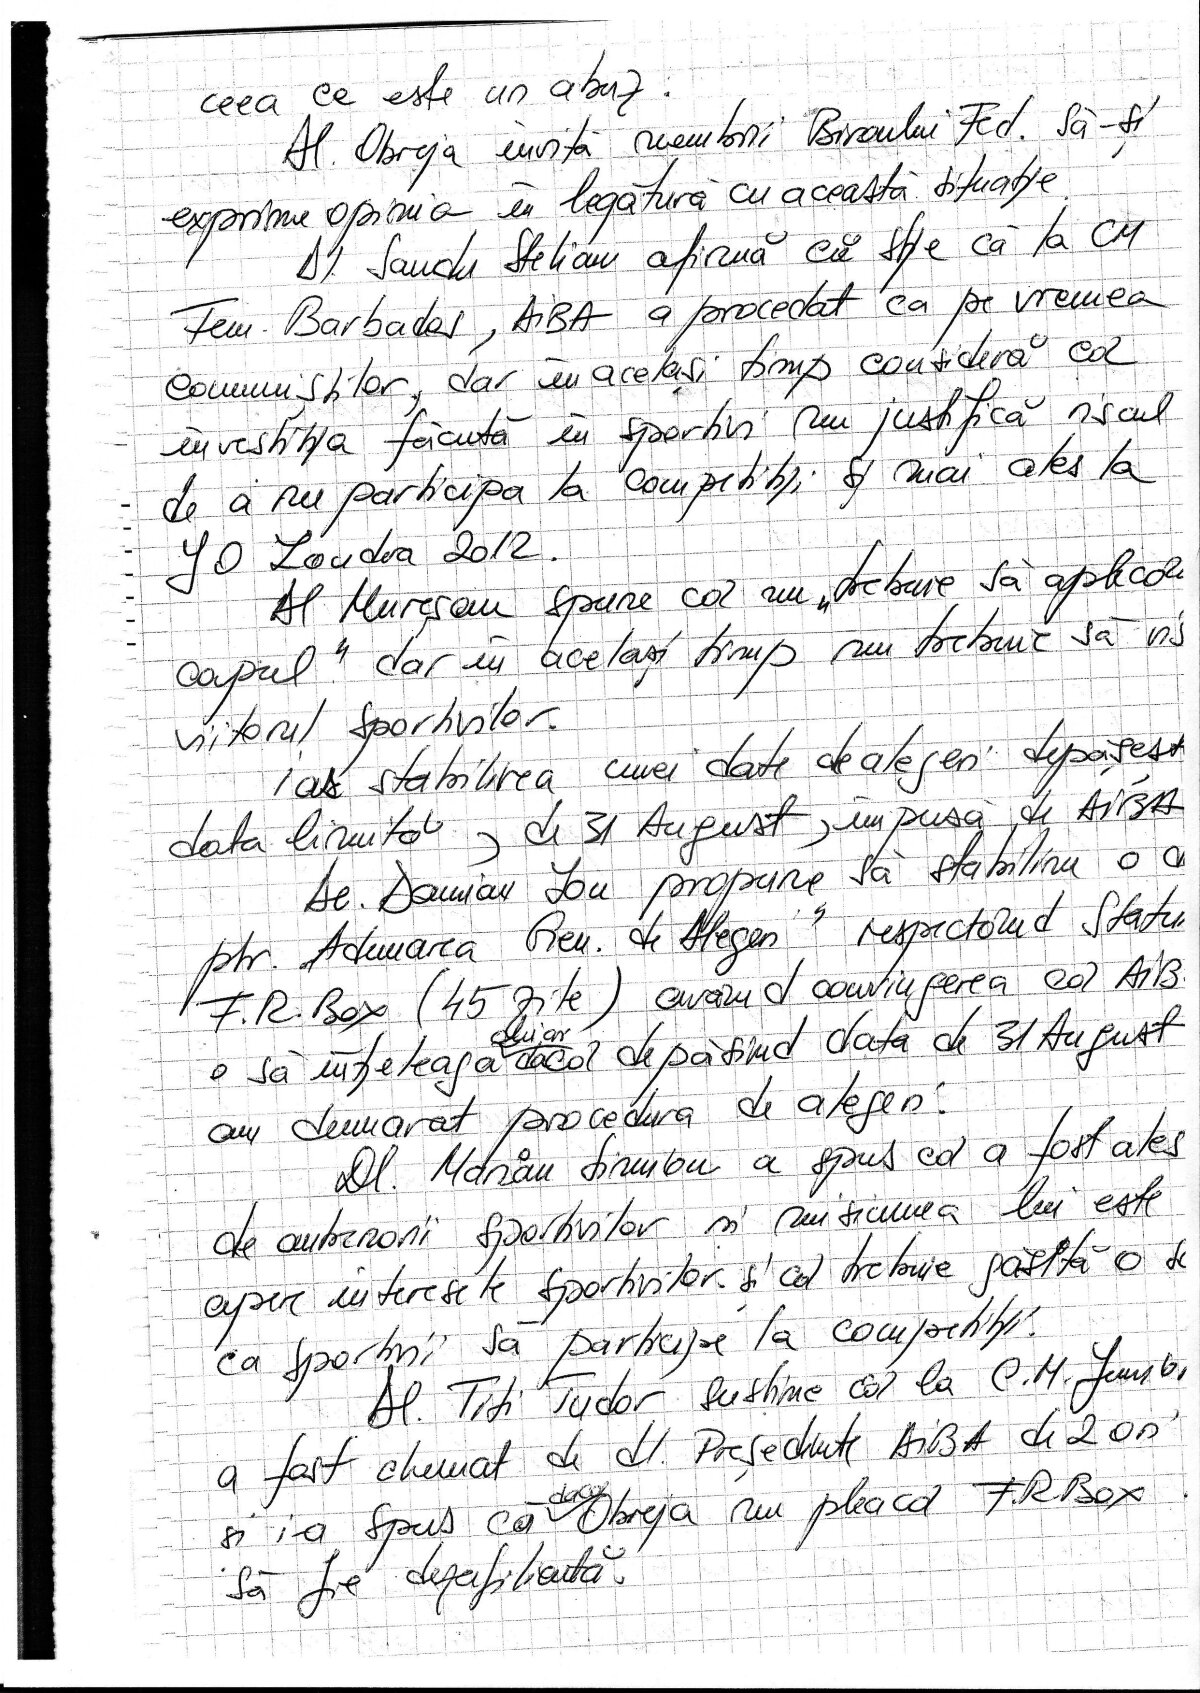 ceea ce este un abuz.
Dl. Obreja invită membrii Biroului Fed. să-și
exprime opinia în legătură cu această situație.
Dl. Sandu Stelian afirmă că știe că la CM
Fem. Barbados, AiBA a procedat ca pe vremea
comuniștilor, dar în același timp consideră că
investiția făcută în sportivi nu justifică riscul
de a nu participa la competiții și mai ales la
JO Londra 2012.
Dl Mureșan spune că nu „trebuie să aplecăm
capul" dar în același timp nu trebuie să ris
viitorul sportivilor.
iar stabilirea unei date de alegeri depășeșt
data limită, de 31 August, impusă de AiBA
Dl. Damian Ion propune să stabilim o d
ptr. „Adunarea Gen. de Alegeri" respectând Statu
F.R.Box (45 zile) având convingerea că AiB
o să înțeleagă chiar dacă depășind data de 31 August
am demarat procedura de alegeri.
Dl. Marian Simion a spus că a fost ales
de antrenorii sportivilor și misiunea lui este
apere interesele sportivilor și că trebuie găsită o s
ca sportivii să participe la competiții.
Dl. Titi Tudor susține că la C.M. Juniori
a fost chemat de dl. Președinte AiBA de 2 ori
și i-a spus că dacă Obreja nu pleacă F.R.Box
să fie dezafiliată.